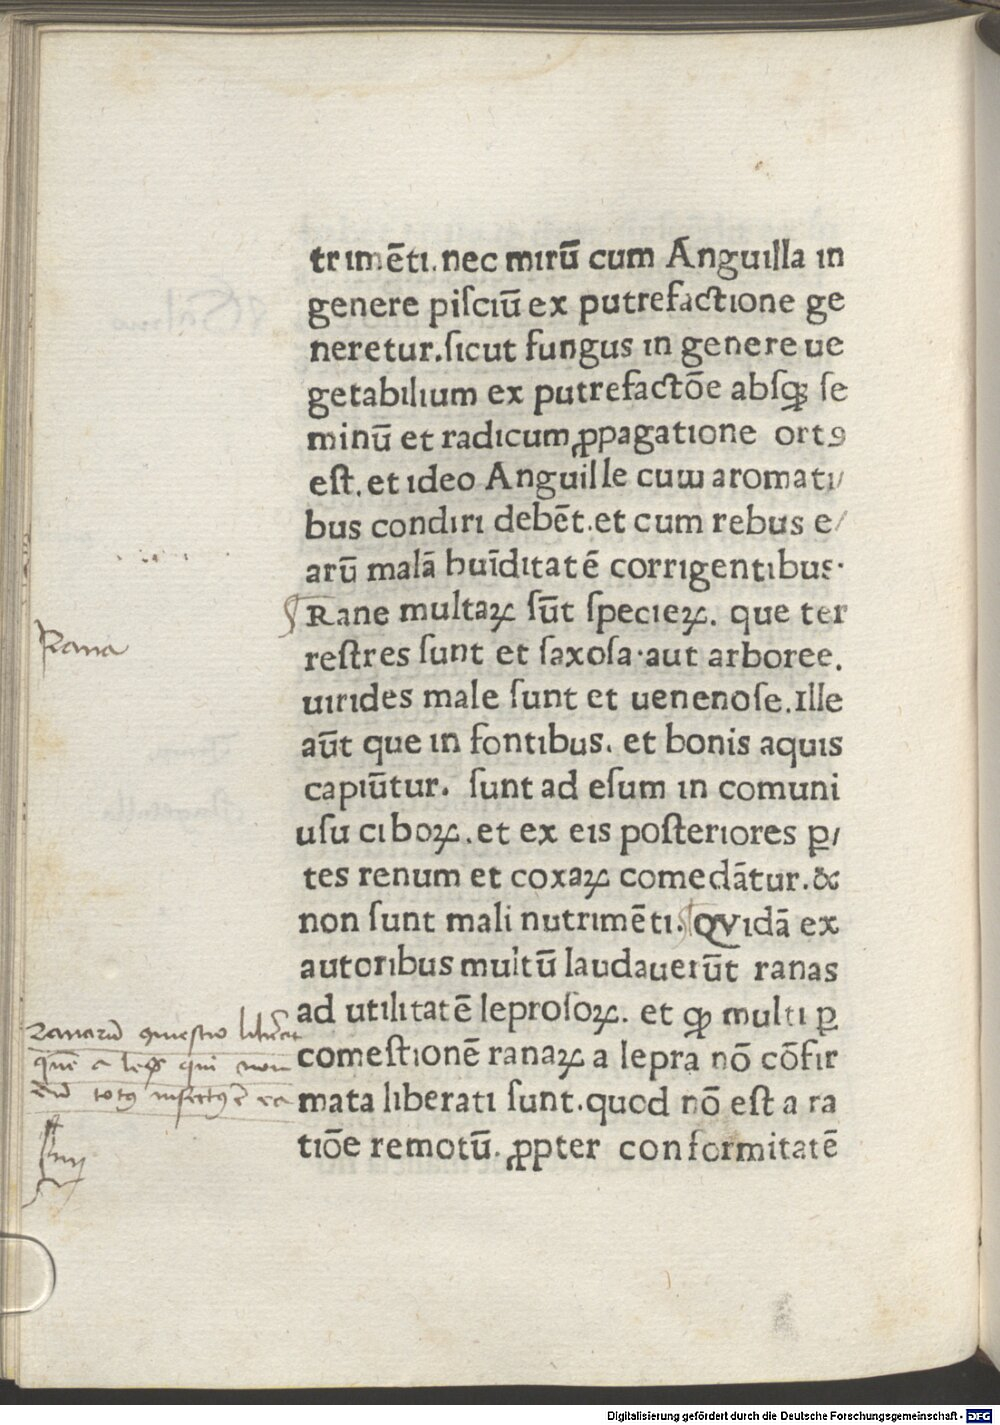 trimēti. nec mirū cum Anguilla in
genere piſciū ex putrefactione ge
neretur. ſicut fungus in genere ue
getabilium ex putrefactōe abſqꝫ ſe
minū et radicum ꝓpagatione ortꝰ
eſt. et ideo Anguille cum aromati/
bus condiri debēt. et cum rebus e/
arū malā huīditatē corrigentibus.
Rana
Rane multaꝝ ſūt ſpecieꝝ. que ter
reſtres ſunt et ſaxoſa. aut arboree.
uirides male ſunt et uenenoſe. Ille
aūt que in fontibus. et bonis aquis
capiūtur. ſunt ad eſum in comuni
uſu ciboꝝ. et ex eis poſteriores ꝑ/
tes renum et coxaꝝ comedātur. &
non ſunt mali nutrimēti. QVidā ex
autoribus multū laudauerūt ranas
ad utilitatē leproſoꝝ. et qꝫ multi ꝑ
comeſtionē ranaꝝ a lepra nō cōfir
mata liberati ſunt. quod nō eſt a ra
tiōe remotū. ꝓpter conformitatē
ranarū
a qui non
totꝰ infectꝰ
Digitalisierung gefördert durch die Deutsche Forschungsgemeinschaft - DFG